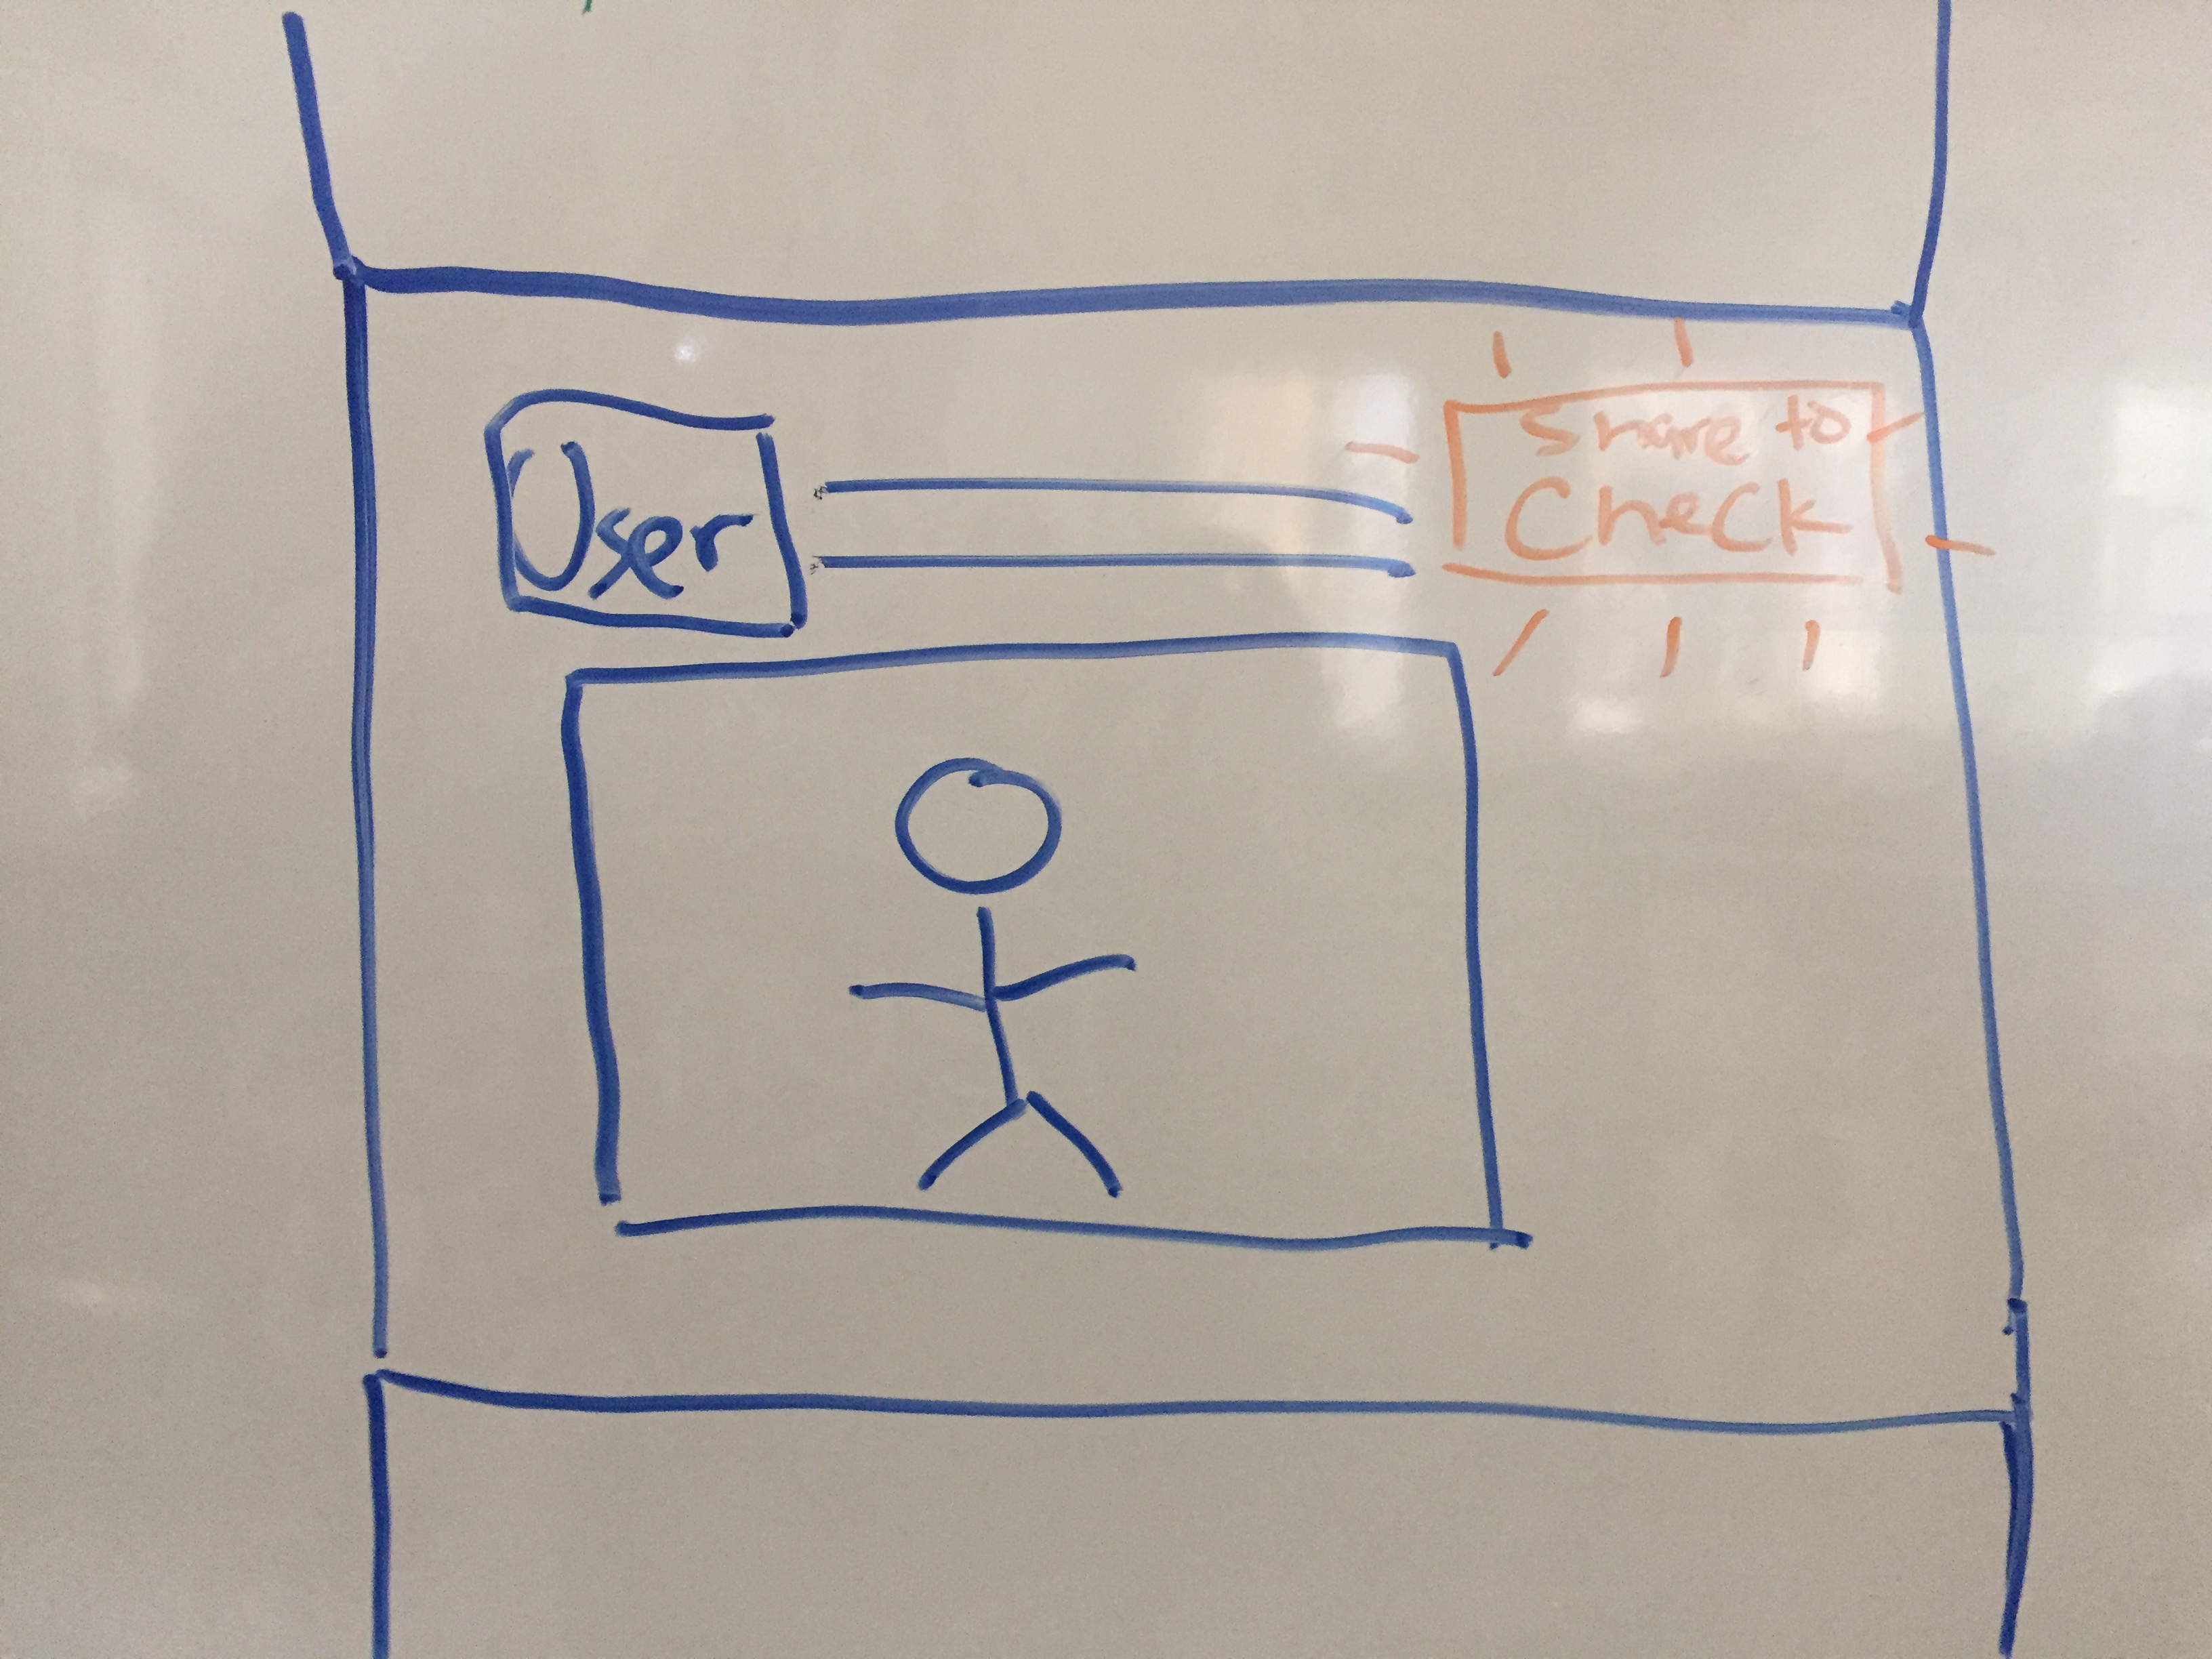 User
Share to
Check